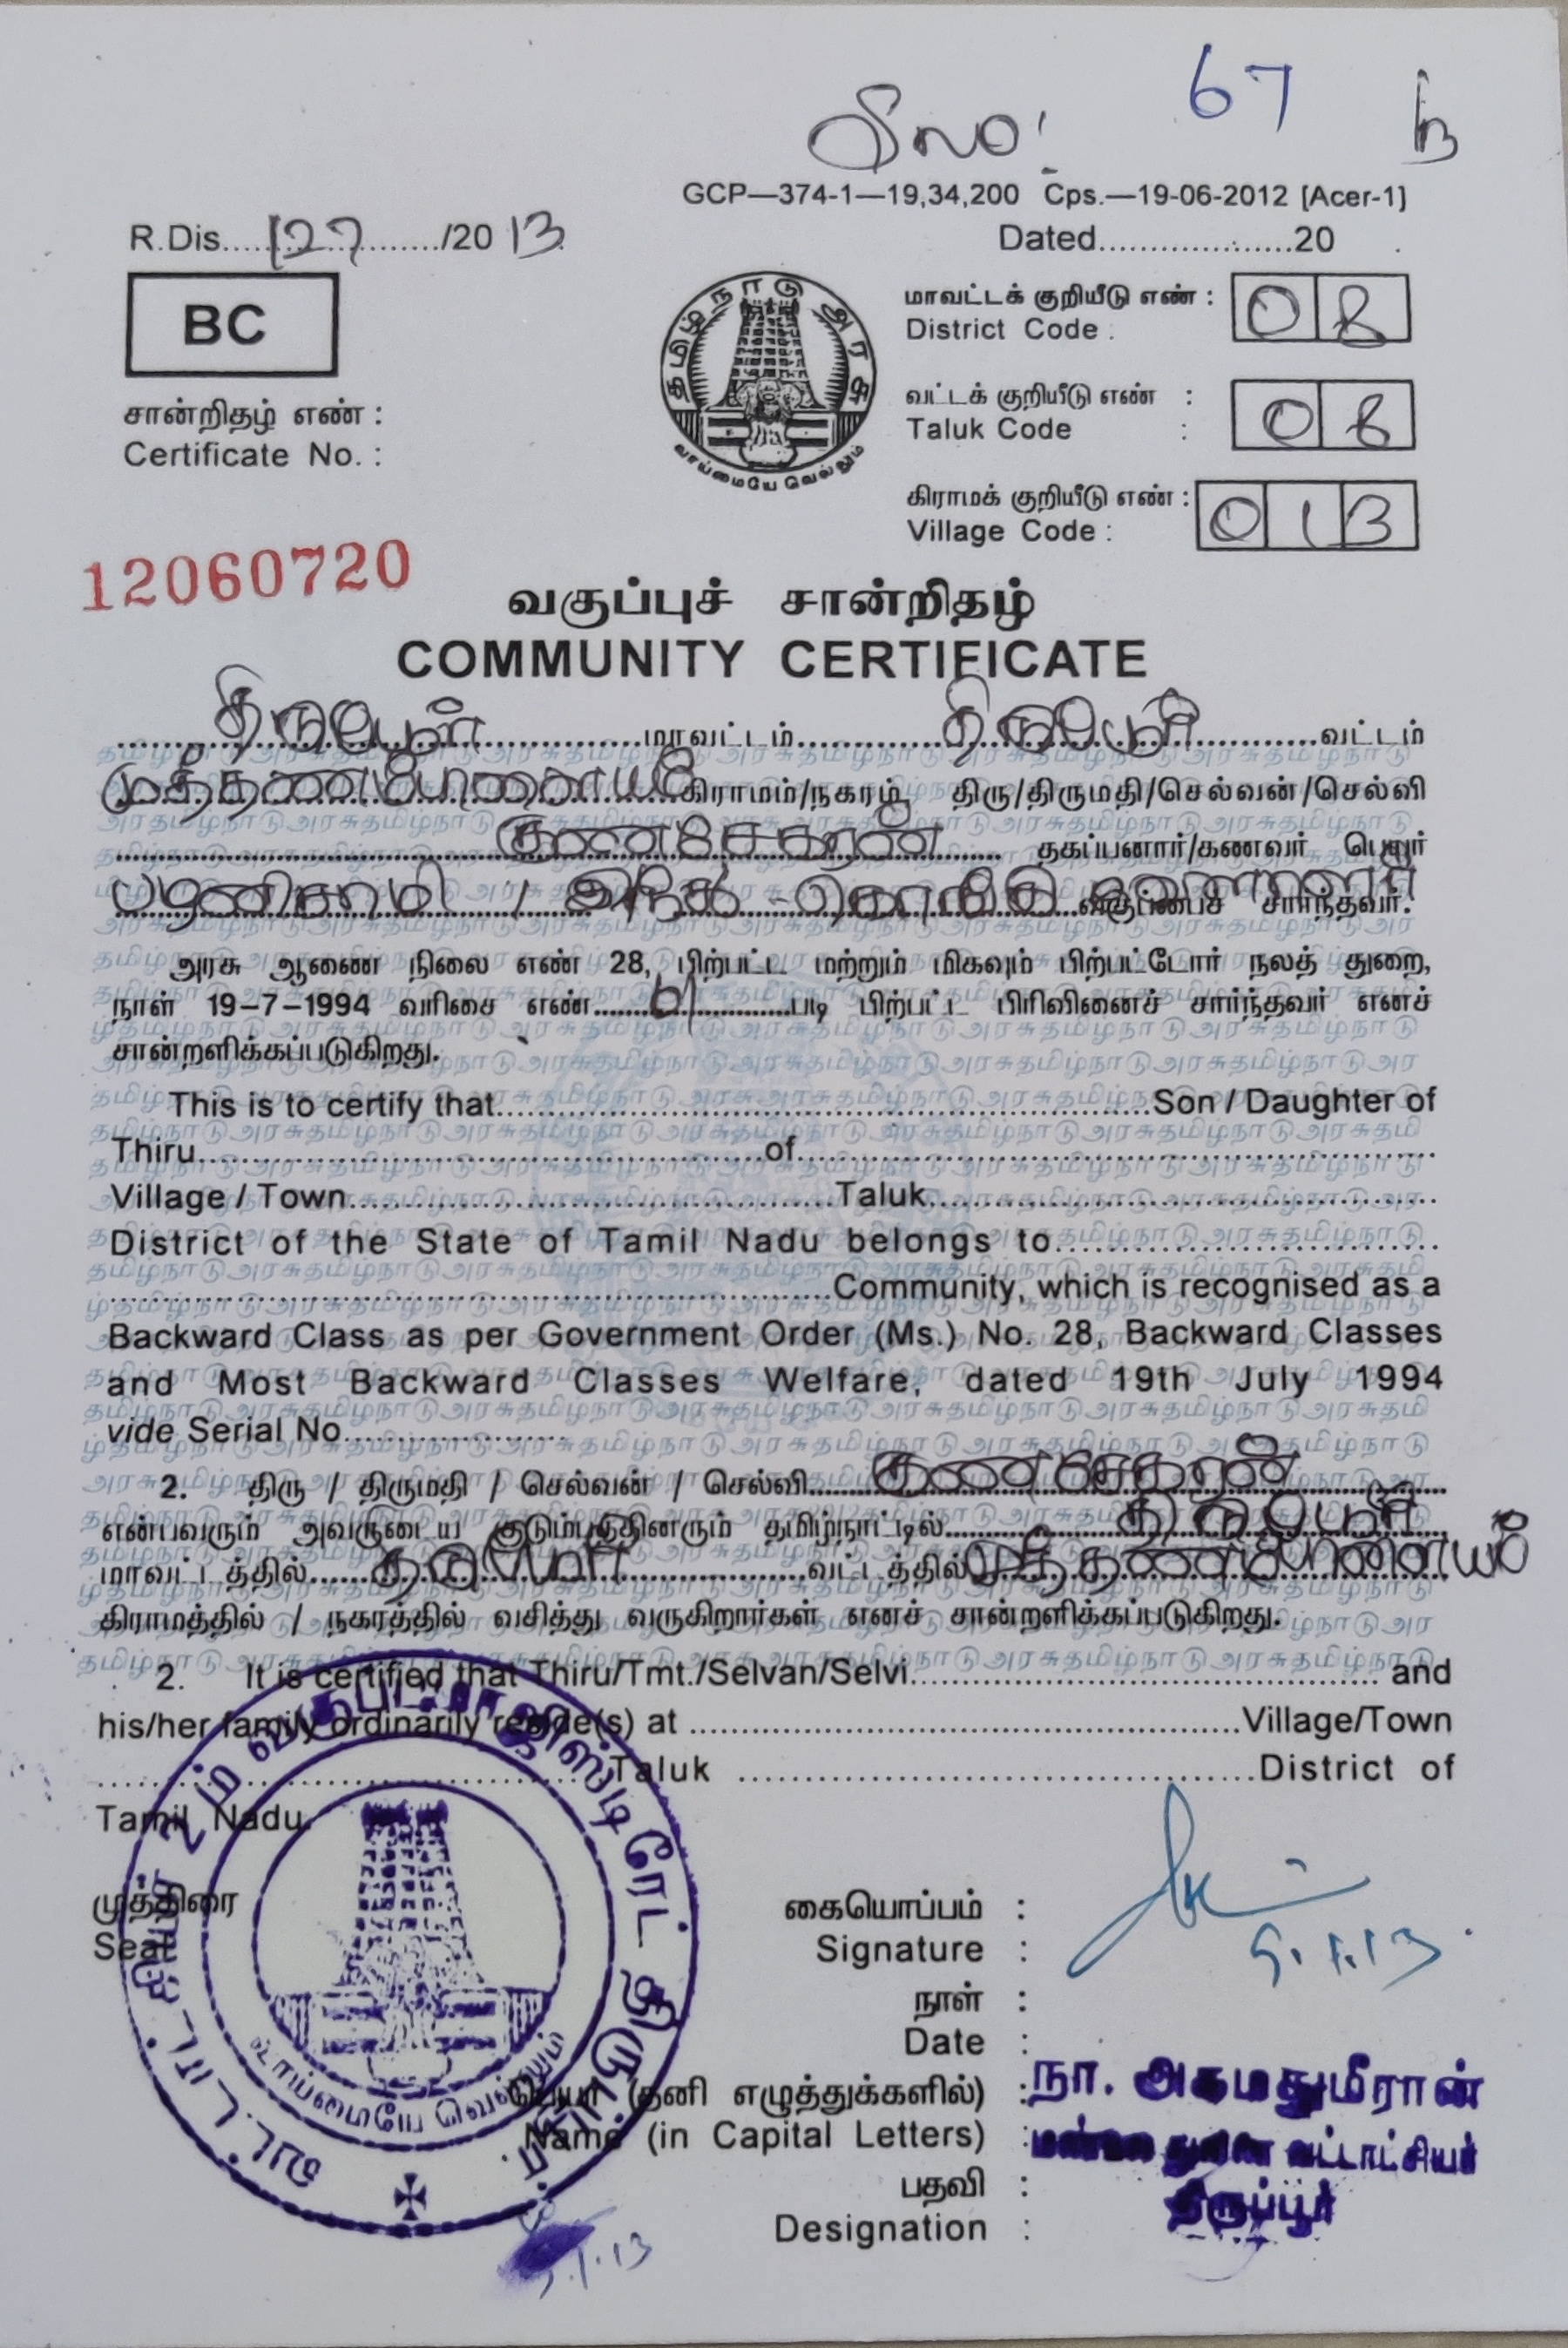 67
GCP—374-1—19,34,200 Cps.—19-06-2012 [Acer-1]
R.Dis.....127.....​/2013 Dated.....................20
BC
தமிழ்நாடு அரசு
வாய்மையே வெல்லும்
மாவட்டக் குறியீடு எண் : 08
District Code :
வட்டக் குறியீடு எண் : 08
Taluk Code :
கிராமக் குறியீடு எண் : 013
Village Code :
சான்றிதழ் எண் :
Certificate No. :
12060720
வகுப்புச் சான்றிதழ்
COMMUNITY CERTIFICATE
திருப்பூர் மாவட்டம் திருப்பூர் வட்டம்
கிராமம்/நகரம் திரு/திருமதி/செல்வன்/செல்வி
குணசேகரன் தகப்பனார்/கணவர் பெயர்
பழனிசாமி / இந்து - கொங்கு வேளாளர் வகுப்பைச் சார்ந்தவர்.
அரசு ஆணை நிலை எண் 28, பிற்பட்ட மற்றும் மிகவும் பிற்பட்டோர் நலத் துறை,
நாள் 19-7-1994 வரிசை எண்.....61.....படி பிற்பட்ட பிரிவினைச் சார்ந்தவர் எனச்
சான்றளிக்கப்படுகிறது.
This is to certify that..........Son / Daughter of
Thiru..........of..........
Village / Town..........Taluk..........
District of the State of Tamil Nadu belongs to..........
..........Community, which is recognised as a
Backward Class as per Government Order (Ms.) No. 28, Backward Classes
and Most Backward Classes Welfare, dated 19th July 1994
vide Serial No..........
2. திரு / திருமதி / செல்வன் / செல்வி குணசேகரன்
என்பவரும் அவருடைய குடும்பத்தினரும் தமிழ்நாட்டில் திருப்பூர்
மாவட்டத்தில் திருப்பூர் வட்டத்தில்
கிராமத்தில் / நகரத்தில் வசித்து வருகிறார்கள் எனச் சான்றளிக்கப்படுகிறது.
2. It is certified that Thiru/Tmt./Selvan/Selvi.......... and
his/her family ordinarily reside(s) at ..........Village/Town
..........Taluk ..........District of
Tamil Nadu.
முத்திரை
Seal
வாய்மையே வெல்லும்
கையொப்பம் :
Signature : 5.1.13
நாள் :
Date :
பெயர் (தனி எழுத்துக்களில்) : நா. அகமதுமீரான்
Name (in Capital Letters) : மண்டல துணை வட்டாட்சியர்
பதவி : திருப்பூர்
Designation :
5.1.13